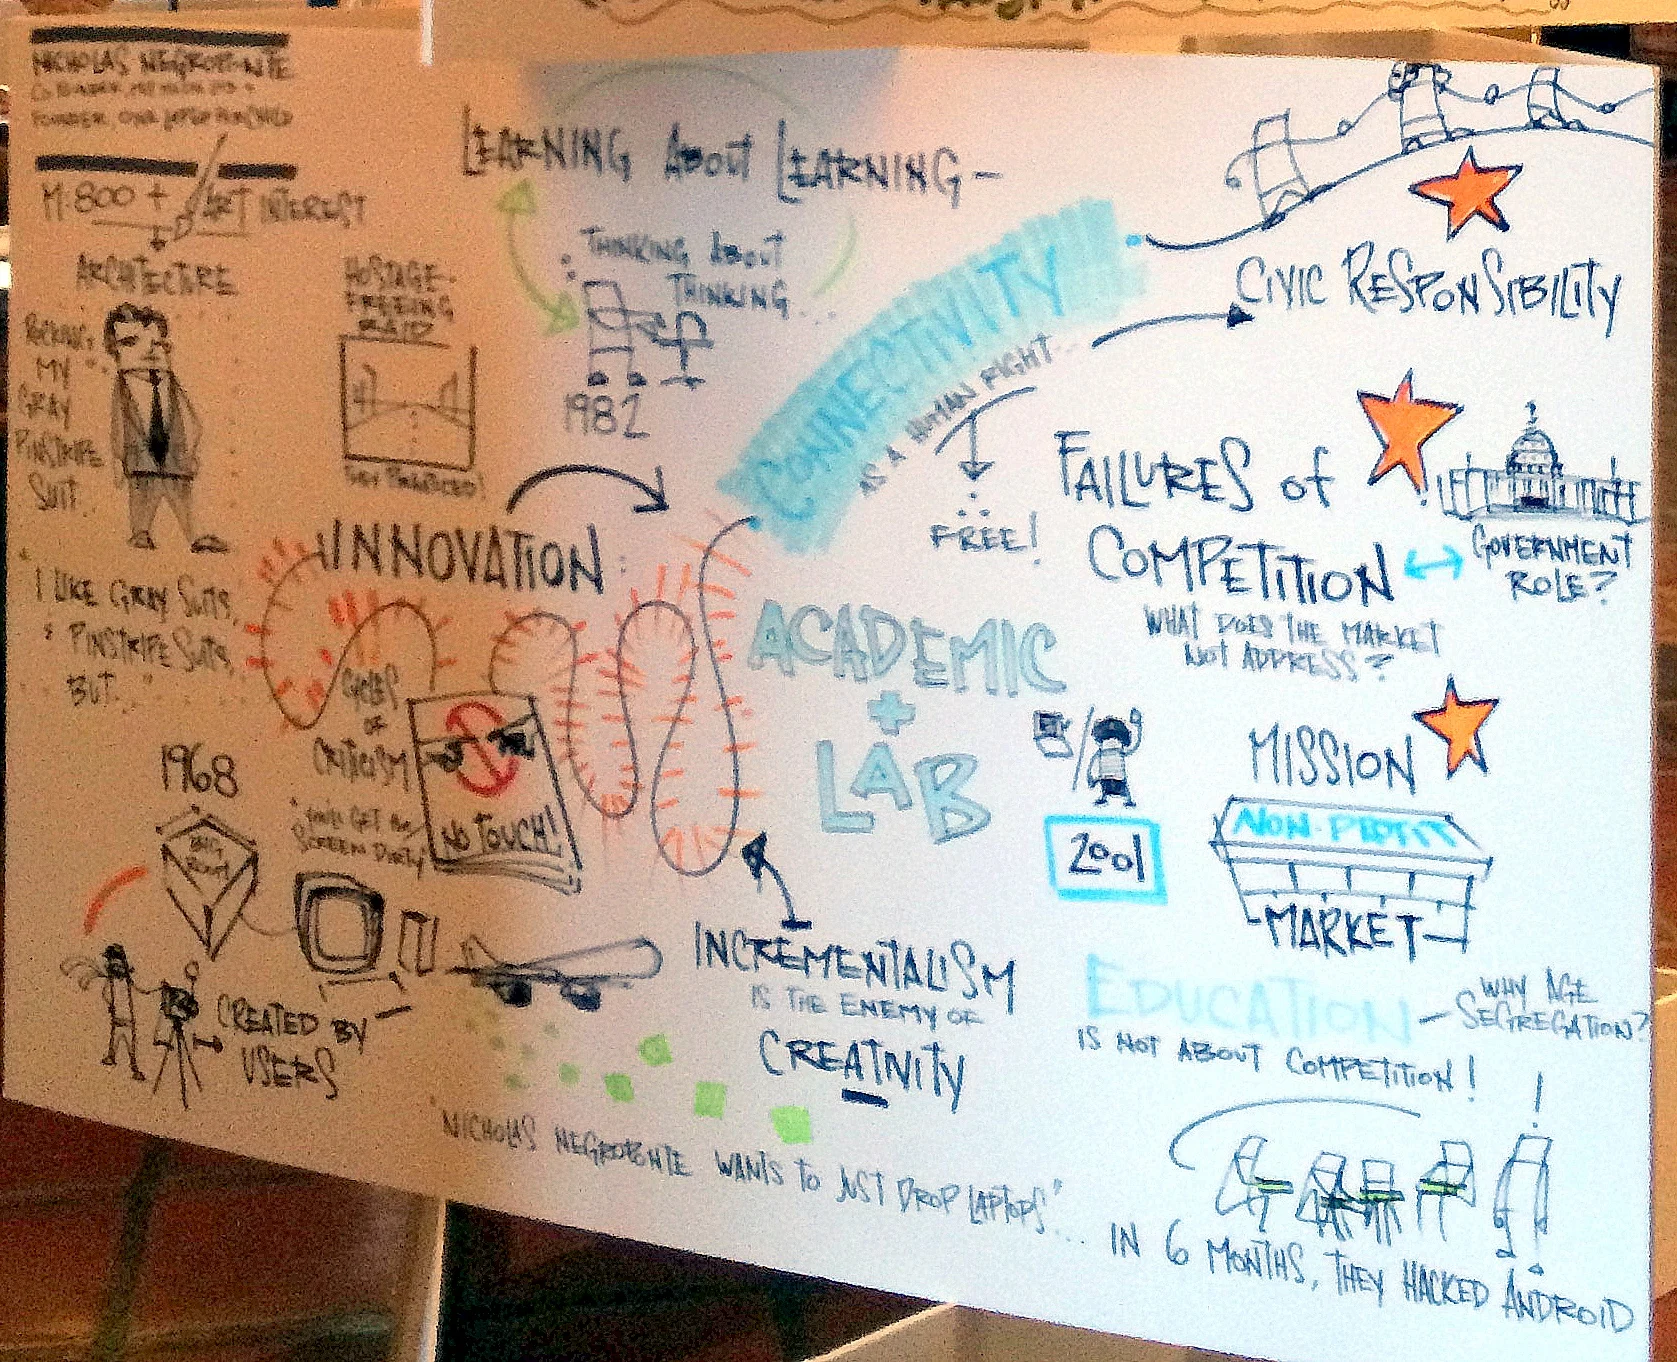 NICHOLAS NEGROPONTE
FOUNDER, ONE LAPTOP PER CHILD
M:800 + ART INTEREST
ARCHITECTURE
ROCKING
MY
GRAY
PINSTRIPE
SUIT..
HOSTAGE-
FREEING
RAID
"I LIKE GRAY SUITS,
& PINSTRIPE SUITS,
BUT..."
LEARNING ABOUT LEARNING -
THINKING ABOUT
THINKING...
1982
INNOVATION:
CYCLES
OF
CRITICISM
"YOU'LL GET THE
SCREEN DIRTY"
NO TOUCH!
1968
CREATED BY
USERS
CONNECTIVITY
AS A HUMAN RIGHT...
FREE!
CIVIC RESPONSIBILITY
FAILURES OF
COMPETITION
GOVERNMENT
ROLE?
WHAT DOES THE MARKET
NOT ADDRESS?
ACADEMIC
+
LAB
2001
MISSION
NON-PROFIT
MARKET
INCREMENTALISM
IS THE ENEMY OF
CREATIVITY
EDUCATION
- WHY AGE
SEGREGATION?
IS NOT ABOUT COMPETITION!
"NICHOLAS NEGROPONTE WANTS TO JUST DROP LAPTOPS"...
IN 6 MONTHS, THEY HACKED ANDROID